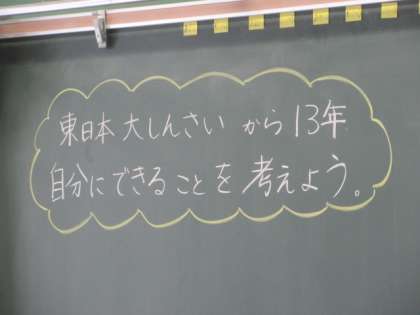 東日本大しんさいから13年
自分にできることを考えよう。